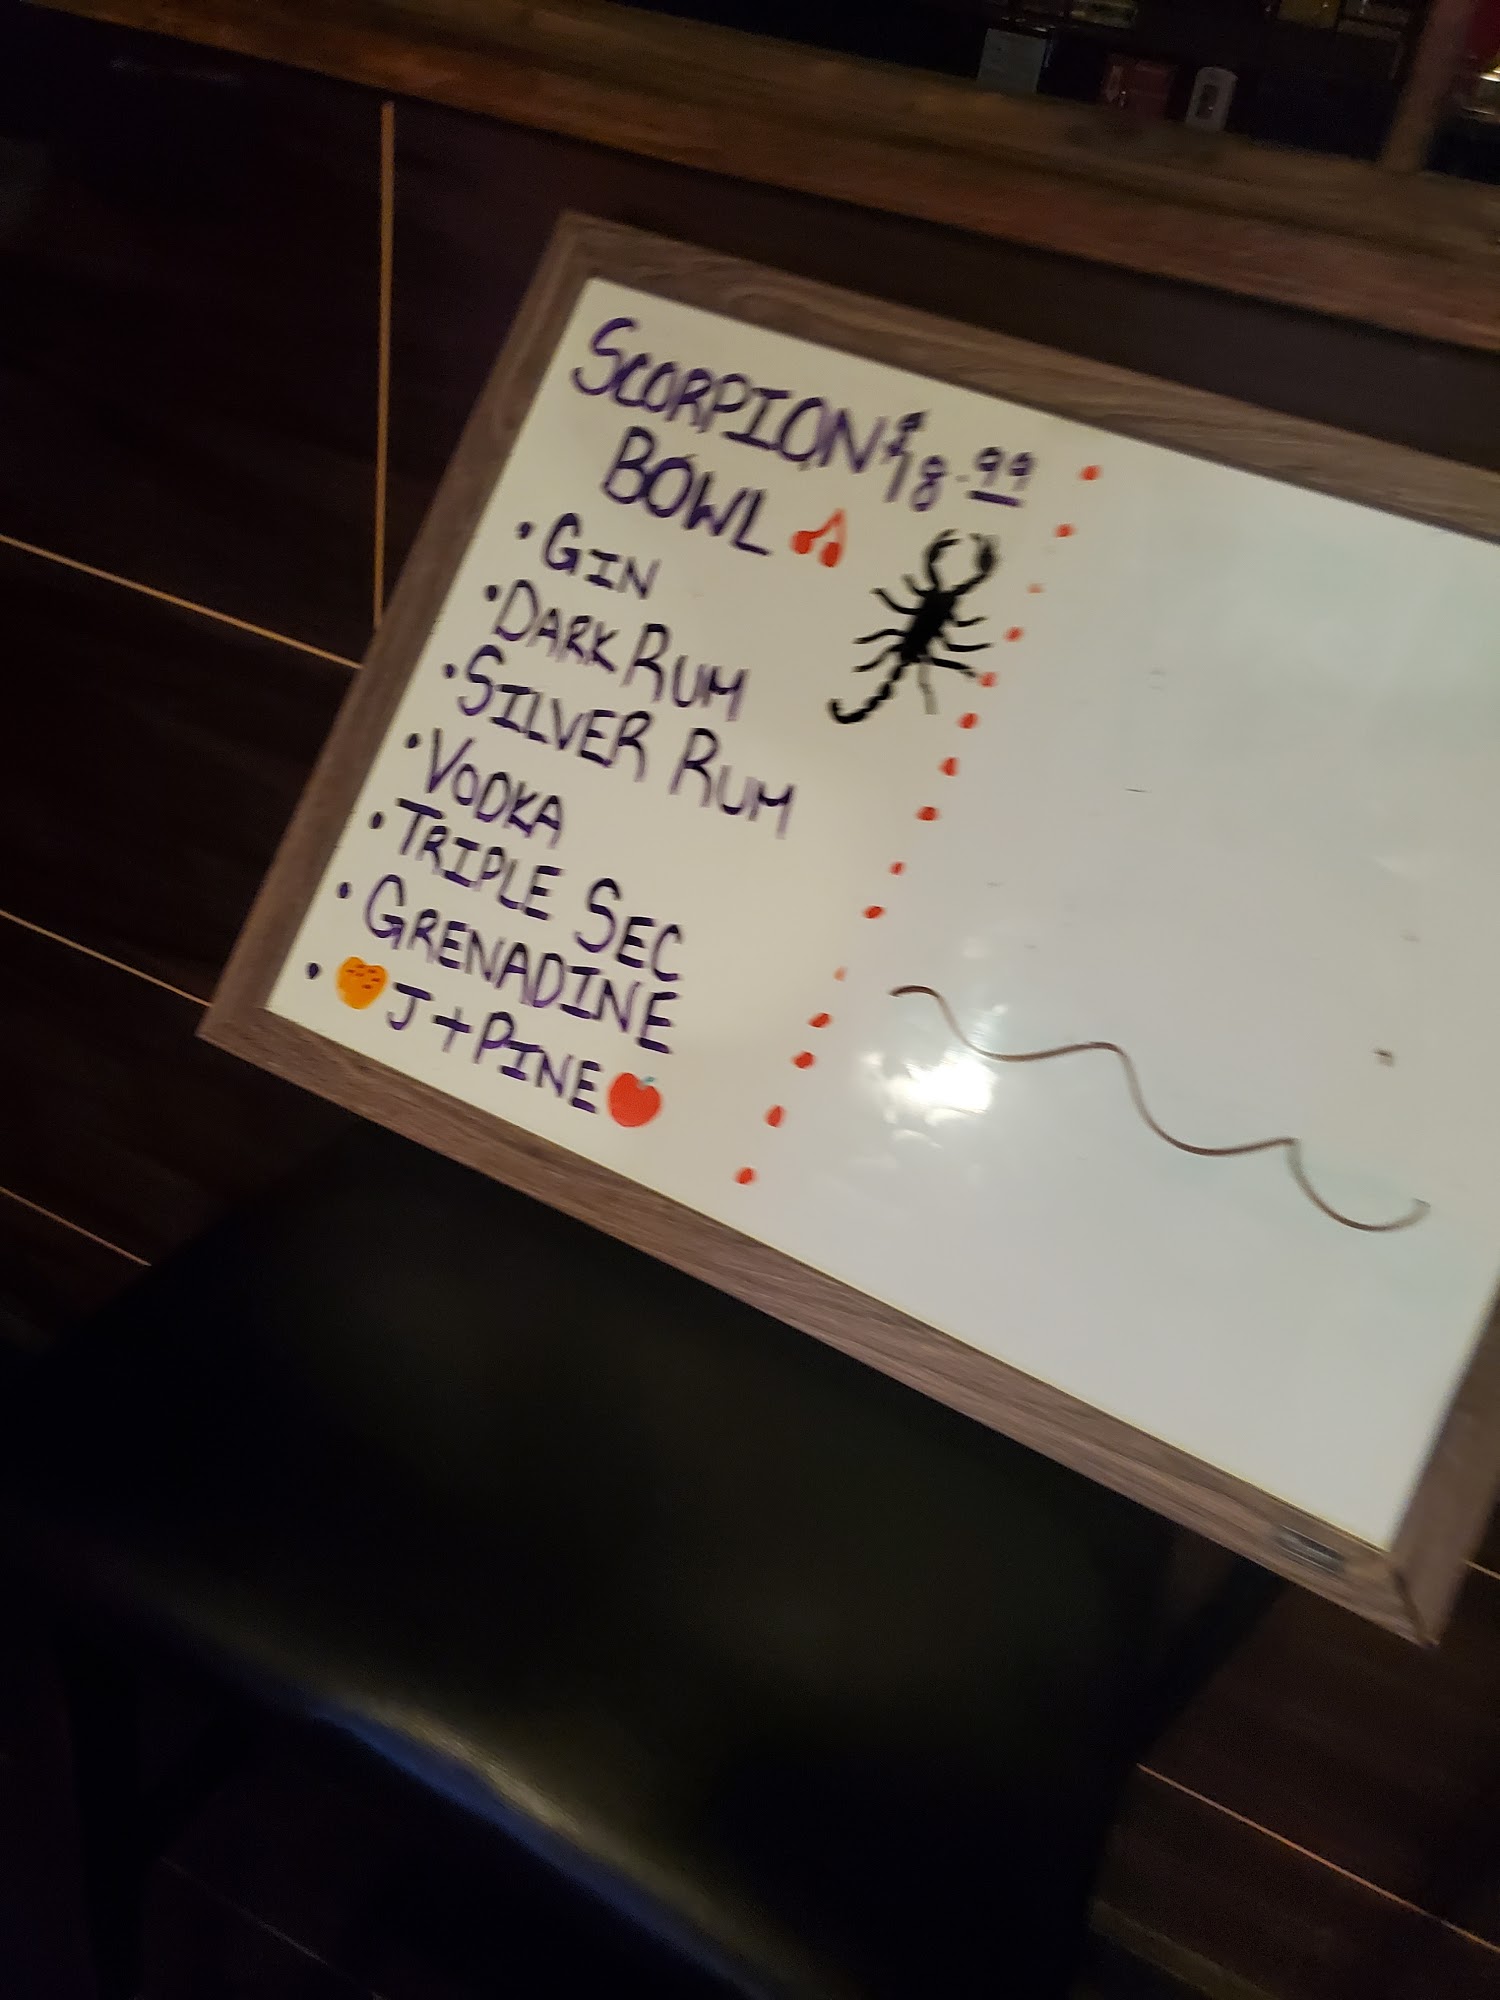 SCORPION $18.99
BOWL
• GIN
• DARK RUM
• SILVER RUM
• VODKA
• TRIPLE SEC
• GRENADINE
• J + PINE